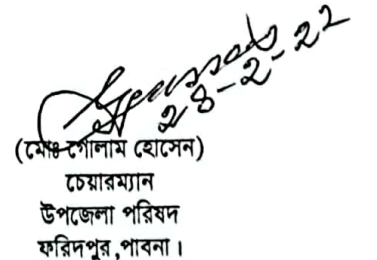 28-2-22
(মোঃ গোলাম হোসেন)
চেয়ারম্যান
উপজেলা পরিষদ
ফরিদপুর,পাবনা।